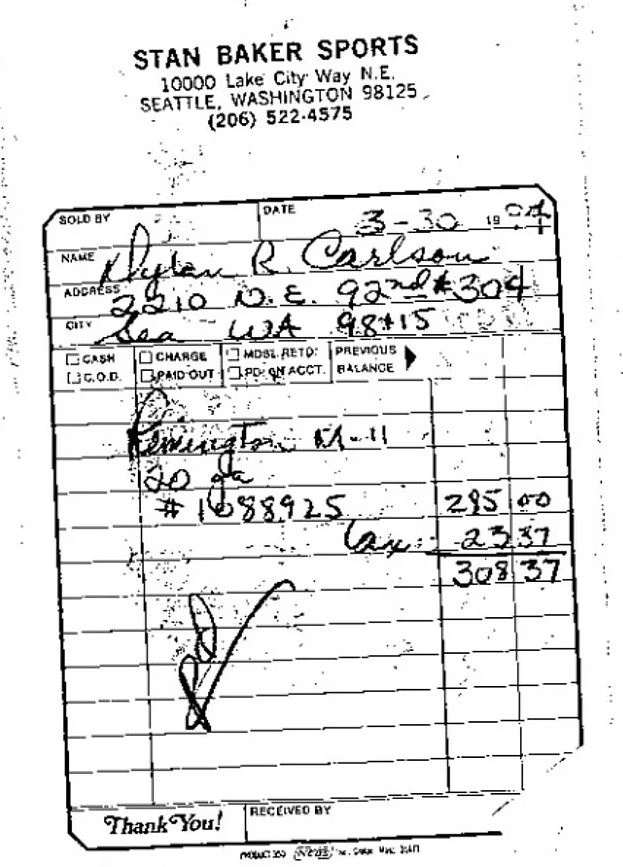 STAN BAKER SPORTS
10000 Lake City Way N.E.
SEATTLE, WASHINGTON 98125
(206) 522-4575
SOLD BY DATE 3-30 1994
NAME Dylan R. Carlson
ADDRESS 2210 N.E. 92nd #304
CITY Sea WA 98115
☐ CASH ☐ CHARGE ☐ MDSE. RETD. PREVIOUS
☐ C.O.D. ☐ PAID OUT ☐ PD. ON ACCT. BALANCE
Remington M-11
20 ga
#1088925 285 00
tax 23 37
308 37
Pd
Thank You! RECEIVED BY